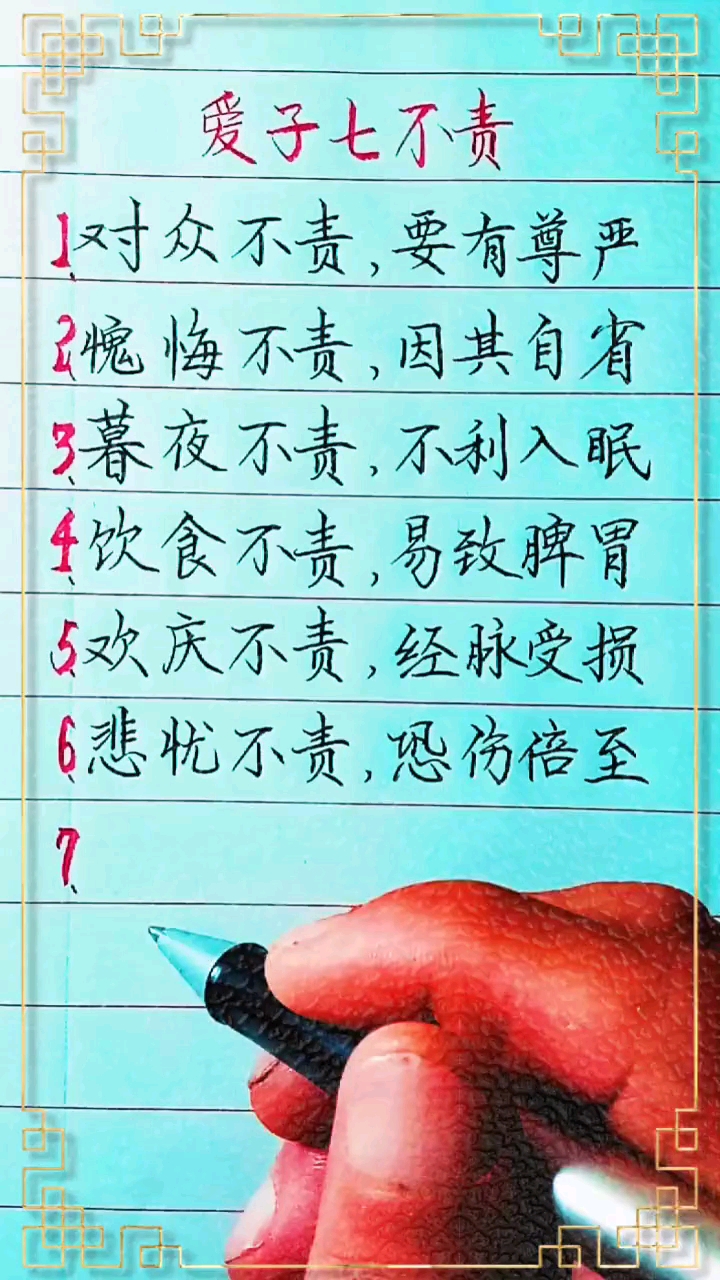 爱子七不责
1、对众不责,要有尊严
2、愧悔不责,因其自省
3、暮夜不责,不利入眠
4、饮食不责,易致脾胃
5、欢庆不责,经脉受损
6、悲忧不责,恐伤倍至
7、